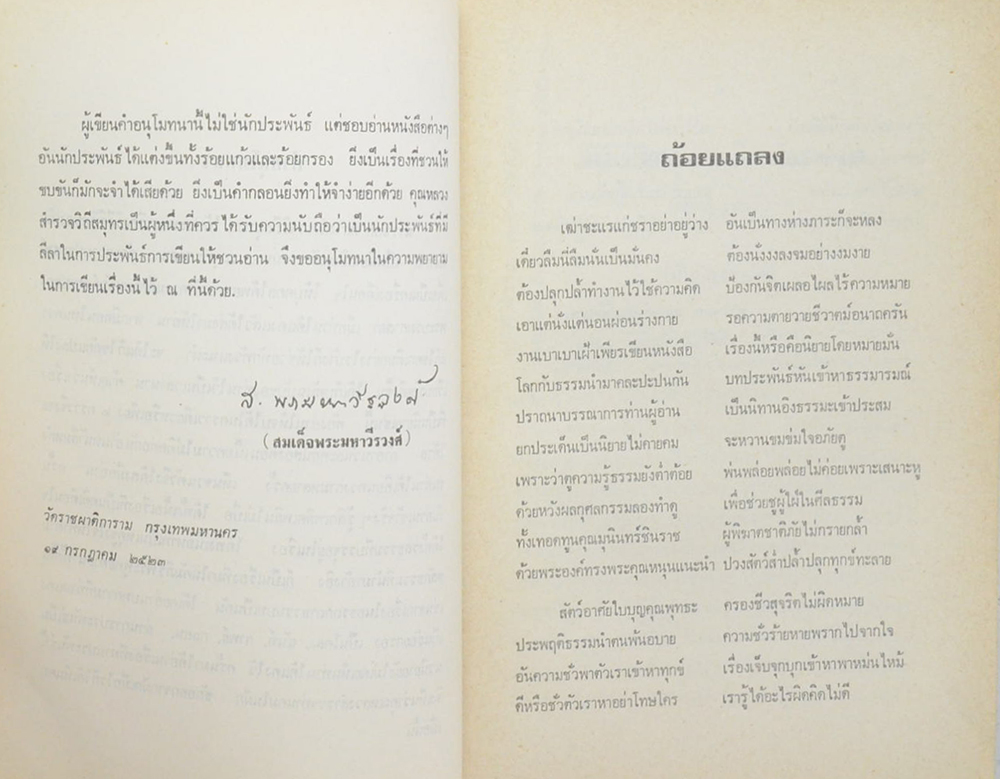 ผู้เขียนคำอนุโมทนานี้ไม่ใช่นักประพันธ์ แต่ชอบอ่านหนังสือต่างๆ
อันนักประพันธ์ได้แต่งขึ้นทั้งร้อยแก้วและร้อยกรอง ยิ่งเป็นเรื่องที่ชวนให้
ขบขันก็มักจะจำได้เสียด้วย ยิ่งเป็นคำกลอนยิ่งทำให้จำง่ายอีกด้วย คุณหลวง
สำรวจวิถีสมุทรเป็นผู้หนึ่งที่ควรได้รับความนับถือว่าเป็นนักประพันธ์ที่มี
ลีลาในการประพันธ์การเขียนให้ชวนอ่าน จึงขออนุโมทนาในความพยายาม
ในการเขียนเรื่องนี้ไว้ ณ ที่นี้ด้วย.
ส. พระมหาวีรวงศ์
(สมเด็จพระมหาวีรวงศ์)
วัดราชผาติการาม กรุงเทพมหานคร
๑๙ กรกฎาคม ๒๕๒๓
ถ้อยแถลง
เฒ่าชะแรแก่ชราอย่าอยู่ว่าง อันเป็นทางห่างภาระก็จะหลง
เดี๋ยวลืมนี่ลืมนั่นเป็นมั่นคง ต้องนั่งงงลงจมอย่างงมงาย
ต้องปลุกปล้ำทำงานไว้ใช้ความคิด ป้องกันจิตเผลอไผลไร้ความหมาย
เอาแต่นั่งแต่นอนผ่อนร่างกาย รอความตายวายชีวาตม์อนาถครัน
งานเบาเบาเฝ้าเพียรเขียนหนังสือ เรื่องนี้หรือคือนิยายโดยหมายมั่น
โลกกับธรรมนำมาคละปะปนกัน บทประพันธ์หันเข้าหาธรรมารมณ์
ปราถนาบรรณาการท่านผู้อ่าน เป็นนิทานอิงธรรมะเข้าประสม
ยกประเด็นเป็นนิยายไม่คายคม จะหวานขมข่มใจอภัยดู
เพราะว่าดูความรู้ธรรมยังต่ำต้อย พ่นพล่อยพล่อยไม่ค่อยเพราะเสนาะหู
ด้วยหวังผลกุศลกรรมลองทำดู เพื่อช่วยชูผู้ใฝ่ในศีลธรรม
ทั้งเทอดทูนคุณมุนินทร์ชินราช ผู้พิฆาตชาติภัยไม่กรายกล้ำ
ด้วยพระองค์ทรงพระคุณหนุนแนะนำ ปวงสัตว์ส่ำปล้ำปลุกทุกข์ทะลาย
สัตว์อาศัยใบบุญคุณพุทธะ ครองชีวสุจริตไม่ผิดหมาย
ประพฤติธรรมนำตนพ้นอบาย ความชั่วร้ายหายพรากไปจากใจ
อันความชั่วพาตัวเราเข้าหาทุกข์ เรื่องเจ็บจุกบุกเข้าหาพาหม่นไหม้
ดีหรือชั่วตัวเราหาอย่าโทษใคร เรารู้ได้อะไรผิดคิดไม่ดี